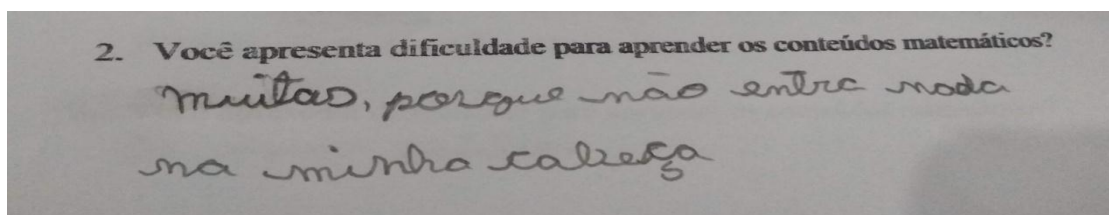 2. Você apresenta dificuldade para aprender os conteúdos matemáticos?
muitas, porque não entra nada
na minha cabeça